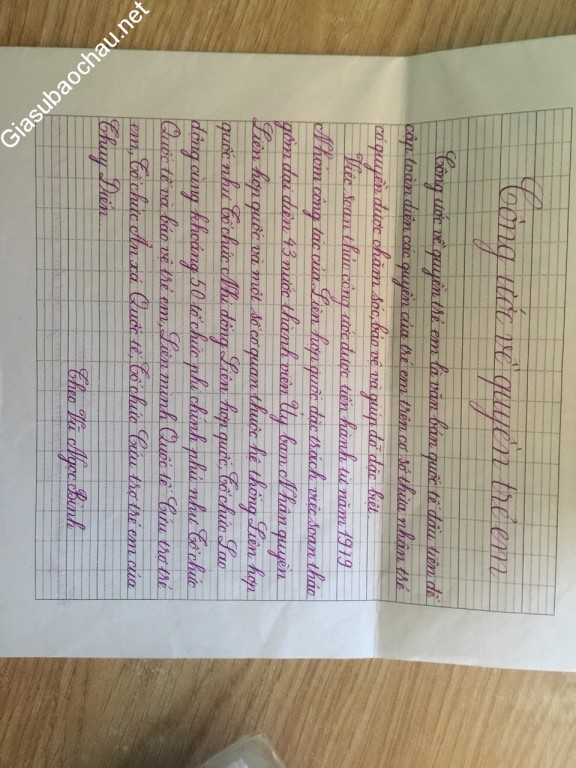 Giasubaochau.net
Công ước về quyền trẻ em
Công ước về quyền trẻ em là văn bản quốc tế đầu tiên đề
cập toàn diện các quyền của trẻ em trên cơ sở thừa nhận trẻ
có quyền được chăm sóc, bảo vệ và giúp đỡ đặc biệt.
Việc soạn thảo công ước được tiến hành từ năm 1979
Nhóm công tác của Liên hợp quốc đặc trách việc soạn thảo
gồm đại diện 43 nước thành viên Uỷ ban Nhân quyền
Liên hợp quốc và một số cơ quan thuộc hệ thống Liên hợp
quốc như Tổ chức Nhi đồng Liên hợp quốc, Tổ chức Lao
động cùng khoảng 50 tổ chức phi chính phủ như Tổ chức
Quốc tế và bảo vệ trẻ em, Liên minh Quốc tế Cứu trợ trẻ
em, Tổ chức Ân xá Quốc tế, Tổ chức Cứu trợ trẻ em của
Thụy Điển...
Theo Vũ Ngọc Bình